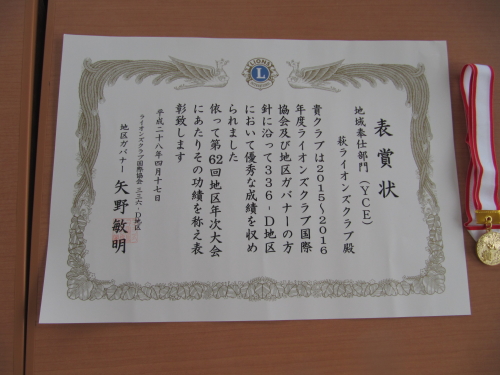 LIONS
L
表賞状
地域奉仕部門（YCE）
萩ライオンズクラブ殿
貴クラブは2015〜2016
年度ライオンズクラブ国際
協会及び地区ガバナーの方
針に沿って336-D地区
において優秀な成績を収め
られました
依って第62回地区年次大会
にあたりその功績を称え表
彰致します
平成二十八年四月十七日
ライオンズクラブ国際協会 三三六-D地区
地区ガバナー 矢野敏明